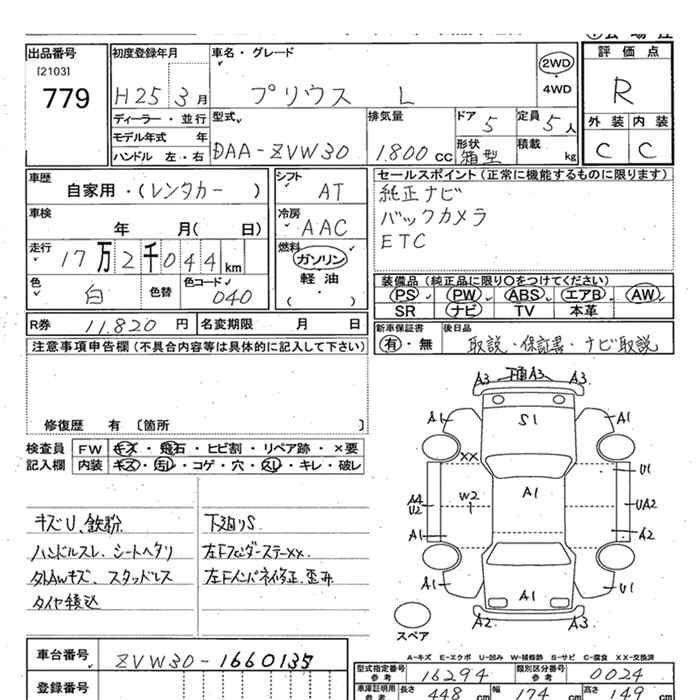 出品番号
[2103]
779
初度登録年月
H25 3月
ディーラー・並行
モデル年式 年
ハンドル 左・右
車名・グレード
プリウス L
2WD
4WD
評価点
R
外装 内装
C C
型式
DAA-ZVW30
排気量
1.800 CC
ドア 5
定員 5人
形状 箱型
積載 kg
車歴
自家用・(レンタカー )
車検
年 月( 日)
走行
17万2千044km
色 白 色替
色コード 040
シフト
AT
冷房
AAC
燃料
ガソリン
軽油
( )
セールスポイント(正常に機能するものに限ります)
純正ナビ
バックカメラ
ETC
装備品(純正品に限り○をつけてください)
PS PW ABS エアB AW
SR ナビ TV 本革
R券 11.820 円 名変期限 月 日
新車保証書
有・無
後日品
取説・保証書・ナビ取説
注意事項申告欄(不具合内容等は具体的に記入して下さい)
修復歴 有 〔箇所 〕
検査員
記入欄
FW キズ・飛石・ヒビ割・リペア跡・×要
内装 キズ・汚レ・コゲ・穴・スレ・キレ・破レ
キズU、鉄粉
ハンドルスレ、シートヘタリ
外AWキズ、スタッドレス
タイヤ積込
下廻りS
左Fフェンダーステーxx.
左Fインパネ修正、歪み
A3 A3 A3
A1 S1 A1
XX
U1
A4
U2
W2
A1
UA2
A1 A2
A1 A1 U1
A2 A3
スペア
A-キズ E-エクボ U-凹み W-補修跡 S-サビ C-腐食 XX-交換済
車台番号
ZVW30-1660135
登録番号
型式指定番号
参考
16294
類別区分番号
参考
0024
車庫証明用
参考
長さ 448 cm 幅 174 cm 高さ 149 cm